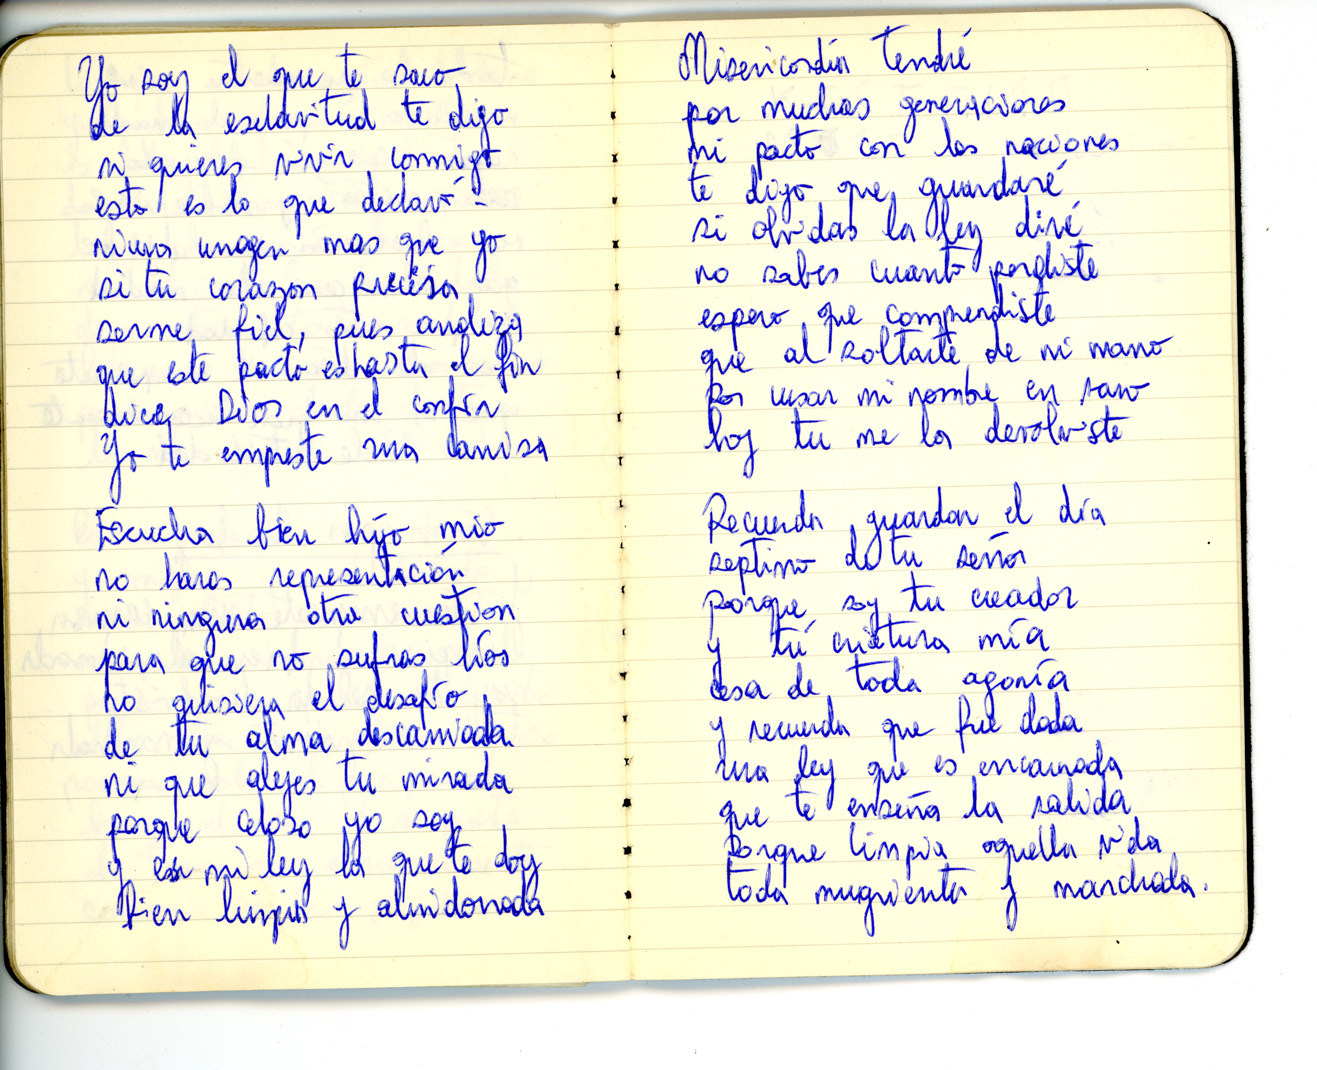 Yo soy el que te saco
de la esclavitud te digo
si quieres vivir conmigo
esto es lo que declaro -
nunca imagen mas que yo
si tu corazon precisa
serme fiel, pues analiza
que este pacto es hasta el fin
dice Dios en el confin
Yo te empreste una camisa
Escucha bien hijo mio
no haras representación
ni ninguna otra cuestion
para que no sufras líos
no quisiera el desafío
de tu alma descarriada
ni que alejes tu mirada
porque celoso yo soy
y es mi ley la que te doy
Bien limpia y almidonada
Misericordia tendré
por muchas generaciones
mi pacto con las naciones
te digo que guardaré
si olvidas la ley diré
no sabes cuanto perdiste
espero que comprendiste
que al soltarte de mi mano
por usar mi nombre en vano
hoy tu me la devolviste
Recuerda guardar el día
septimo de tu señor
porque soy tu creador
y tú criatura mía
cesa de toda agonía
y recuerda que fue dada
una ley que es encarnada
que te enseña la salida
porque limpia aquella vida
toda mugrienta y manchada.